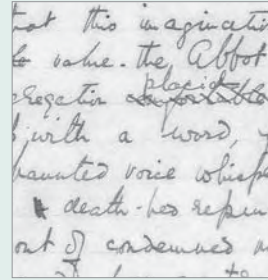 that this imaginati
value. the Abbot
placid
gregation
with a word,
haunted voice whispe
death-bed repen
out of condemned